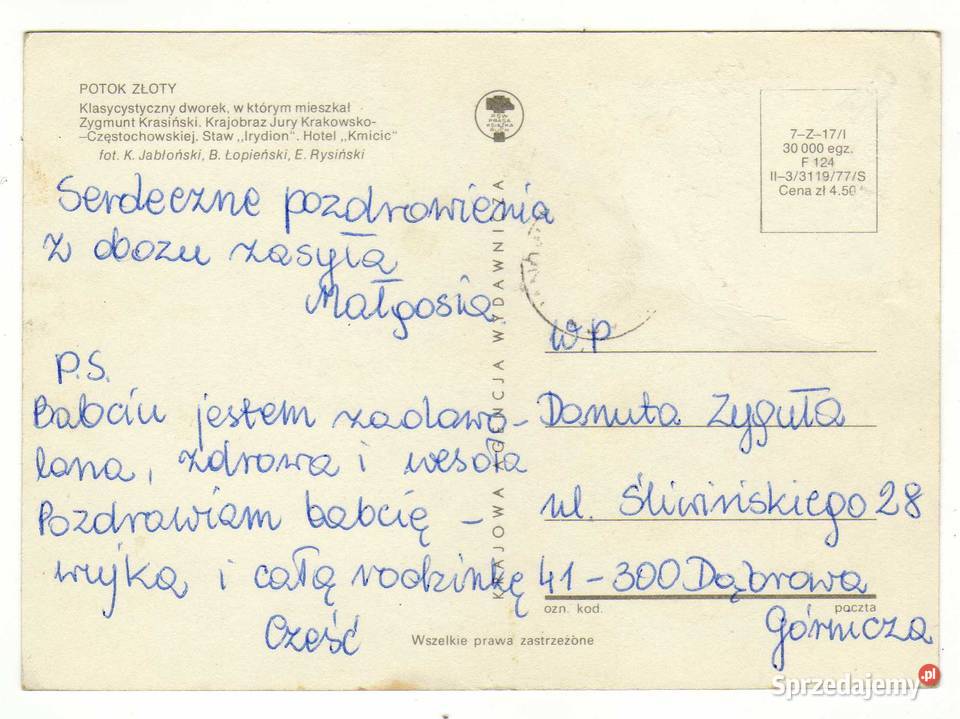 POTOK ZŁOTY
Klasycystyczny dworek, w którym mieszkał
Zygmunt Krasiński. Krajobraz Jury Krakowsko-
–Częstochowskiej. Staw „Irydion". Hotel „Kmicic"
fot. K. Jabłoński, B. Łopieński, E. Rysiński
Serdeczne pozdrowienia
z obozu zasyła
Małgosia
P.S.
Babciu jestem zadowo-
lona, zdrowa i wesoła
Pozdrawiam babcię –
wujka i całą rodzinkę
Cześć
KRAJOWA AGENCJA WYDAWNICZA
RSW
PRASA
KSIĄŻKA
RUCH
7–Z–17/I
30 000 egz.
F 124
II–3/3119/77/S
Cena zł 4.50
W.P
Danuta Zyguła
ul. Śliwińskiego 28
41-300 Dąbrowa
ozn. kod. poczta
Górnicza
Wszelkie prawa zastrzeżone
Sprzedajemy.pl